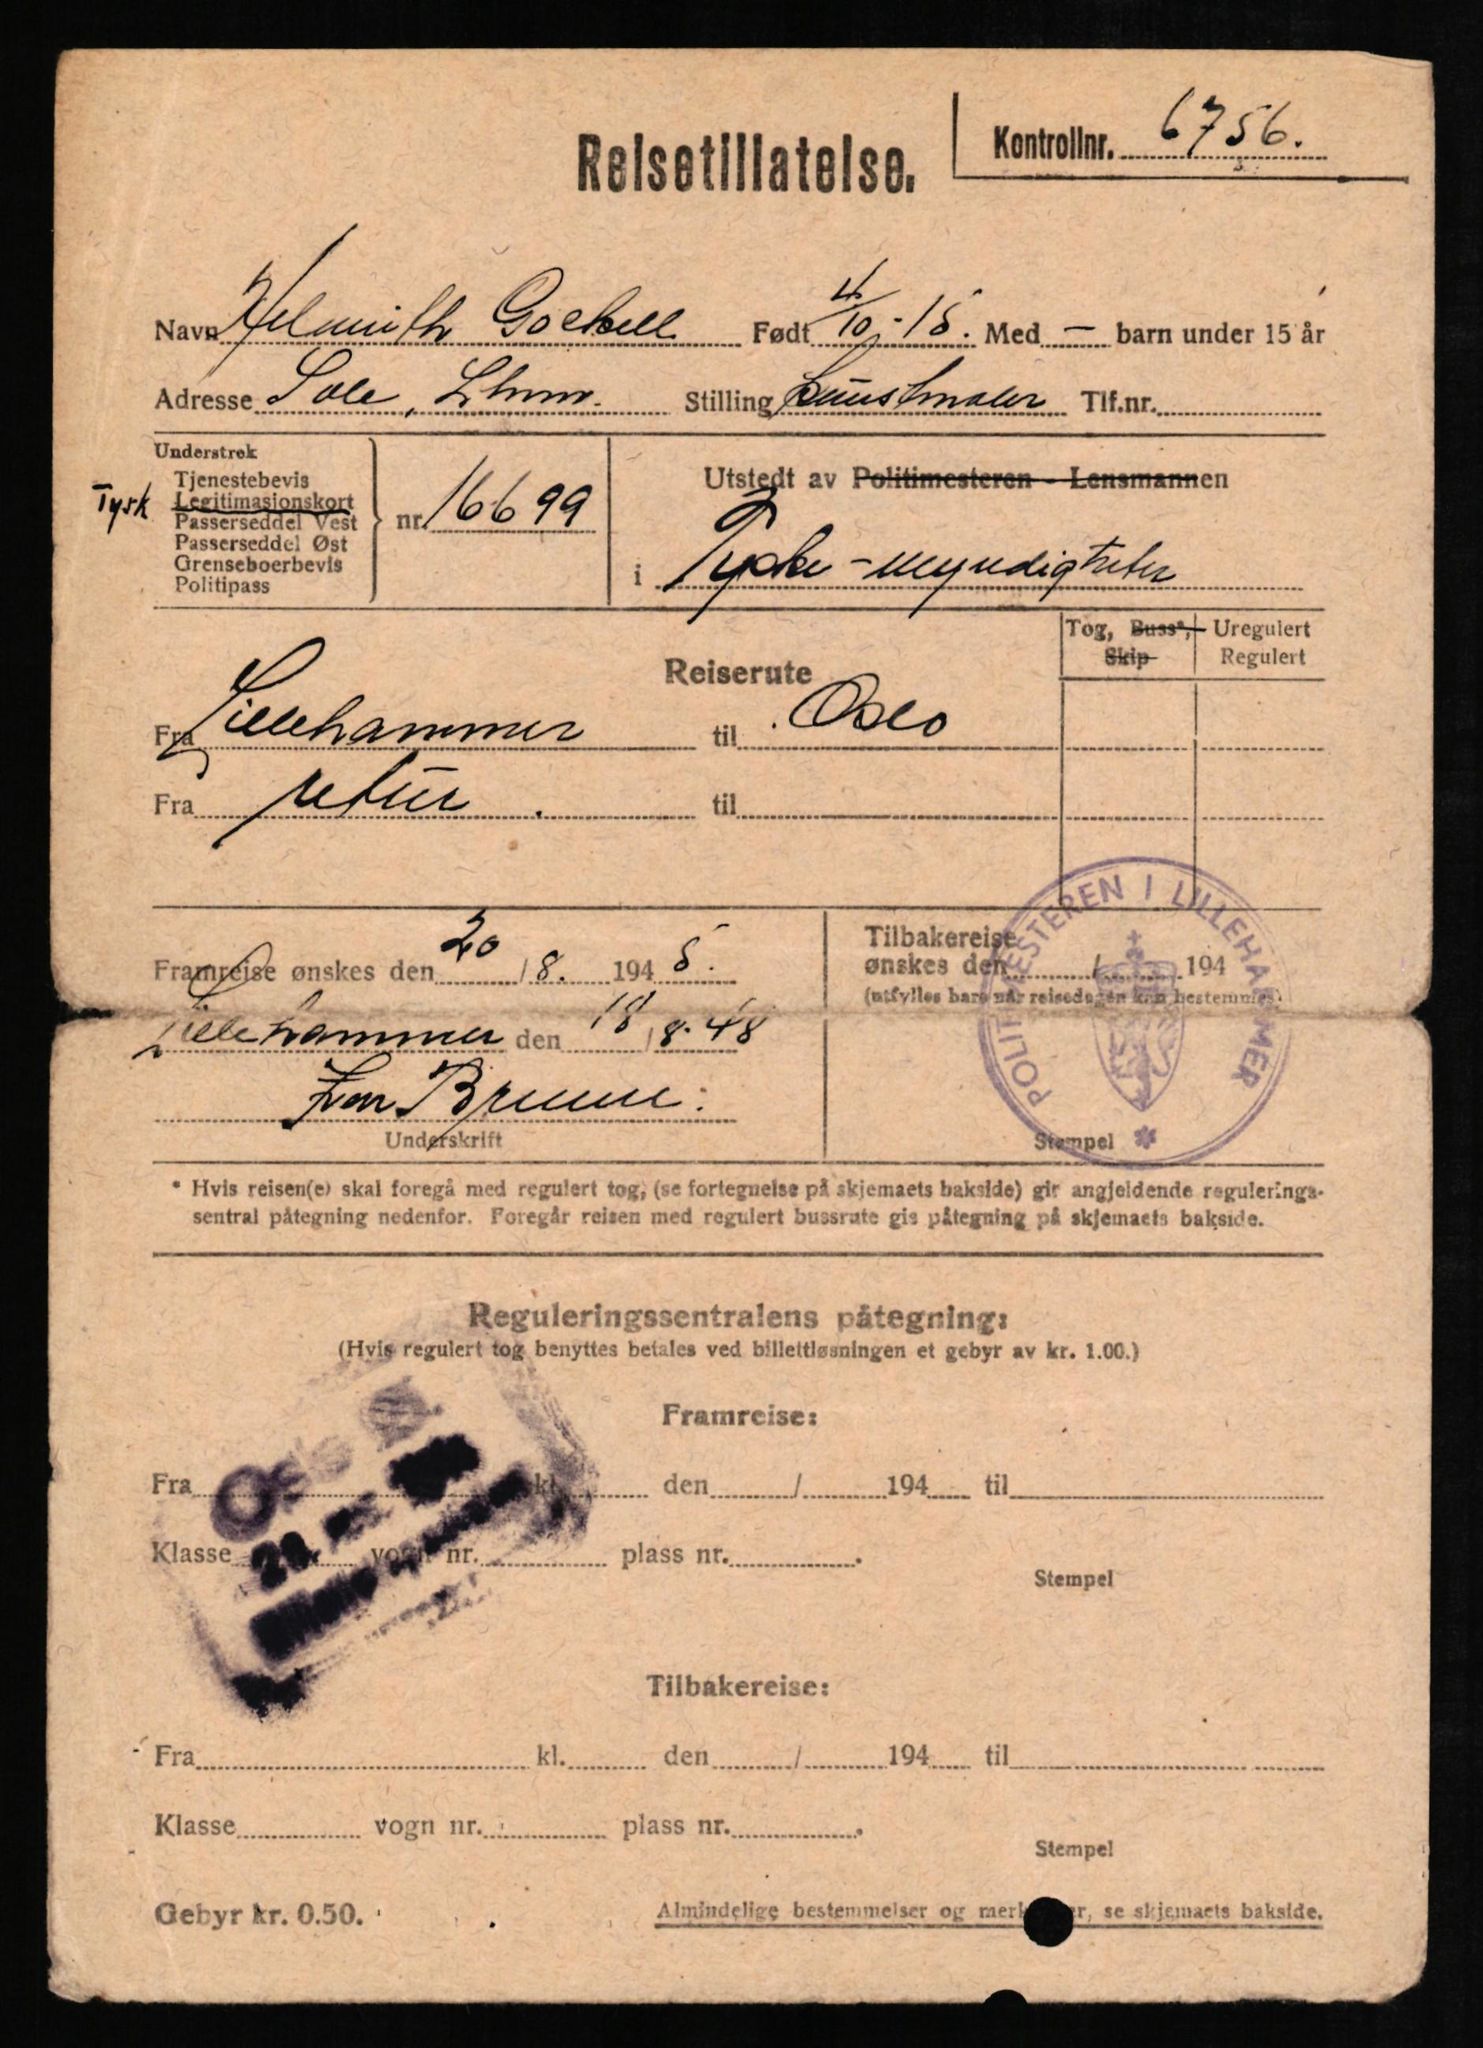 Kontrollnr. 6756.
Reisetillatelse.
Navn Helmuth Gockell Født 4/10-15. Med — barn under 15 år
Adresse Sole, Lhmr. Stilling kunstmaler Tlf.nr.
Understrek
Tjenestebevis
Tysk Legitimasjonskort
Passerseddel Vest
Passerseddel Øst
Grenseboerbevis
Politipass
nr. 16699
Utstedt av Politimesteren - Lensmannen
i Tyske-myndigheter
Tog, Buss*, Skip
Uregulert
Regulert
Reiserute
Fra Lillehammer til Oslo
Fra retur. til
Framreise ønskes den 20/8. 1945.
Tilbakereise
ønskes den / 194
(utfylles bare når reisedagen kan bestemmes)
Lillehammer den 18/8-45
Brunn.
Underskrift
Stempel
POLITIMESTEREN I LILLEHAMMER
* Hvis reisen(e) skal foregå med regulert tog, (se fortegnelse på skjemaets bakside) gir angjeldende regulerings-
sentral påtegning nedenfor. Foregår reisen med regulert bussrute gis påtegning på skjemaets bakside.
Reguleringssentralens påtegning:
(Hvis regulert tog benyttes betales ved billettløsningen et gebyr av kr. 1.00.)
Framreise:
Fra kl. den / 194 til
Klasse vogn nr. plass nr.
Stempel
Tilbakereise:
Fra kl. den / 194 til
Klasse vogn nr. plass nr.
Stempel
Gebyr kr. 0.50.
Almindelige bestemmelser og merknader, se skjemaets bakside.